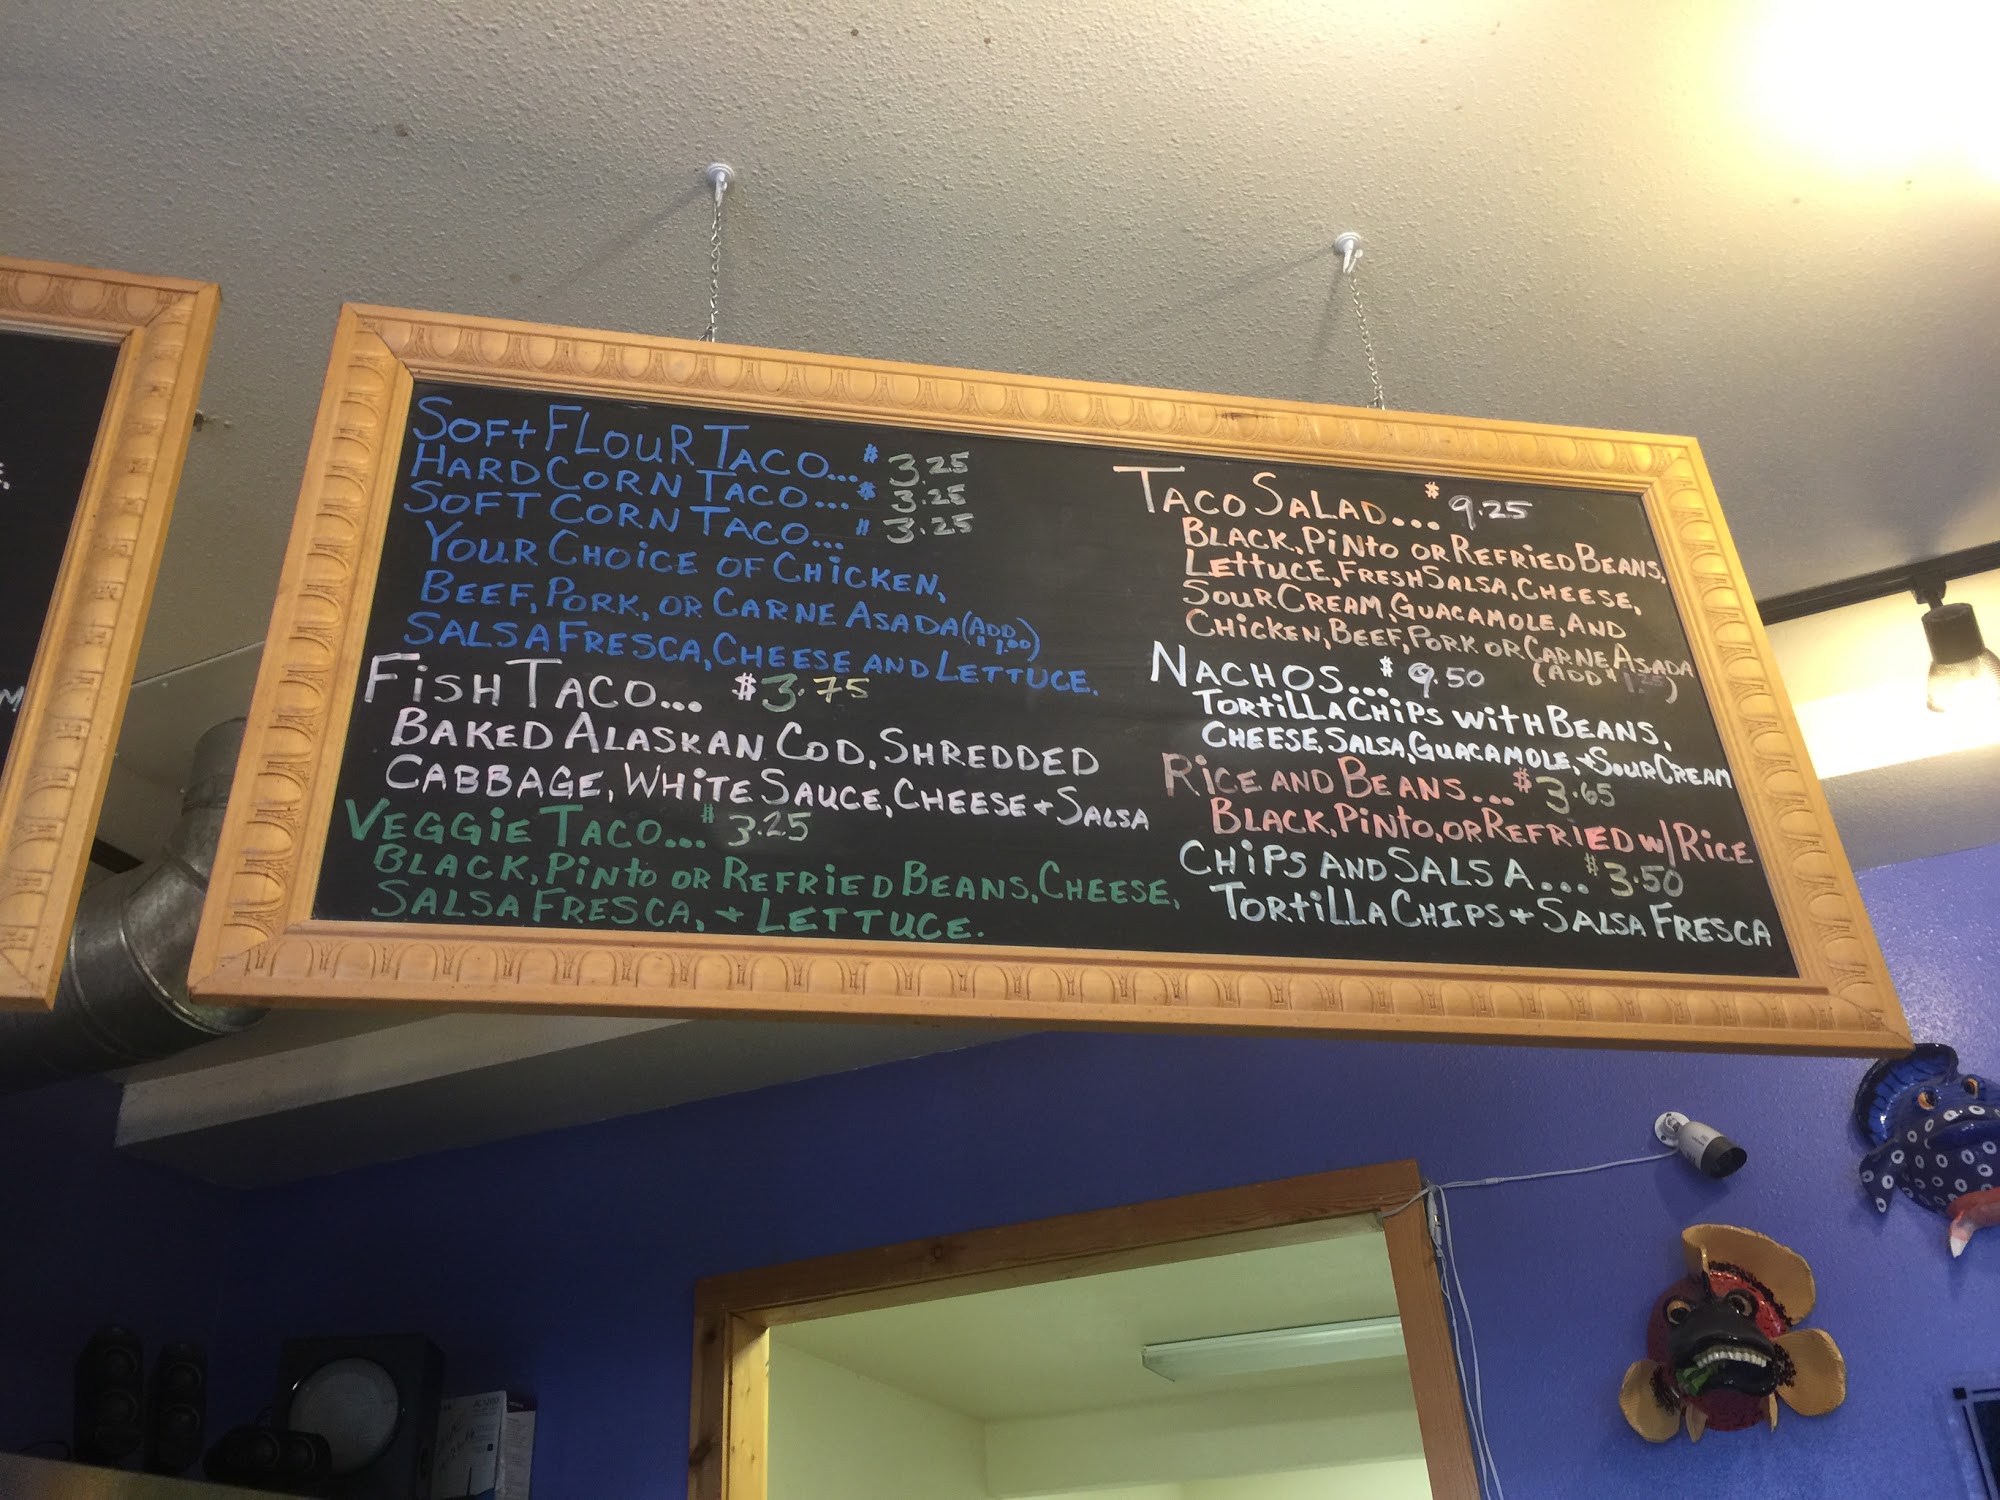 SOFT FLOUR TACO... $3.25
HARD CORN TACO... $3.25
SOFT CORN TACO... $3.25
YOUR CHOICE OF CHICKEN,
BEEF, PORK, OR CARNE ASADA (ADD $1.00)
SALSA FRESCA, CHEESE AND LETTUCE.
FISH TACO... $3.75
BAKED ALASKAN COD, SHREDDED
CABBAGE, WHITE SAUCE, CHEESE + SALSA
VEGGIE TACO... $3.25
BLACK, PINTO OR REFRIED BEANS, CHEESE,
SALSA FRESCA, + LETTUCE.
TACO SALAD... $9.25
BLACK, PINTO OR REFRIED BEANS,
LETTUCE, FRESH SALSA, CHEESE,
SOUR CREAM, GUACAMOLE, AND
CHICKEN, BEEF, PORK OR CARNE ASADA
(ADD $1.25)
NACHOS... $9.50
TORTILLA CHIPS WITH BEANS,
CHEESE, SALSA, GUACAMOLE, + SOUR CREAM
RICE AND BEANS... $3.65
BLACK, PINTO, OR REFRIED W/ RICE
CHIPS AND SALSA... $3.50
TORTILLA CHIPS + SALSA FRESCA